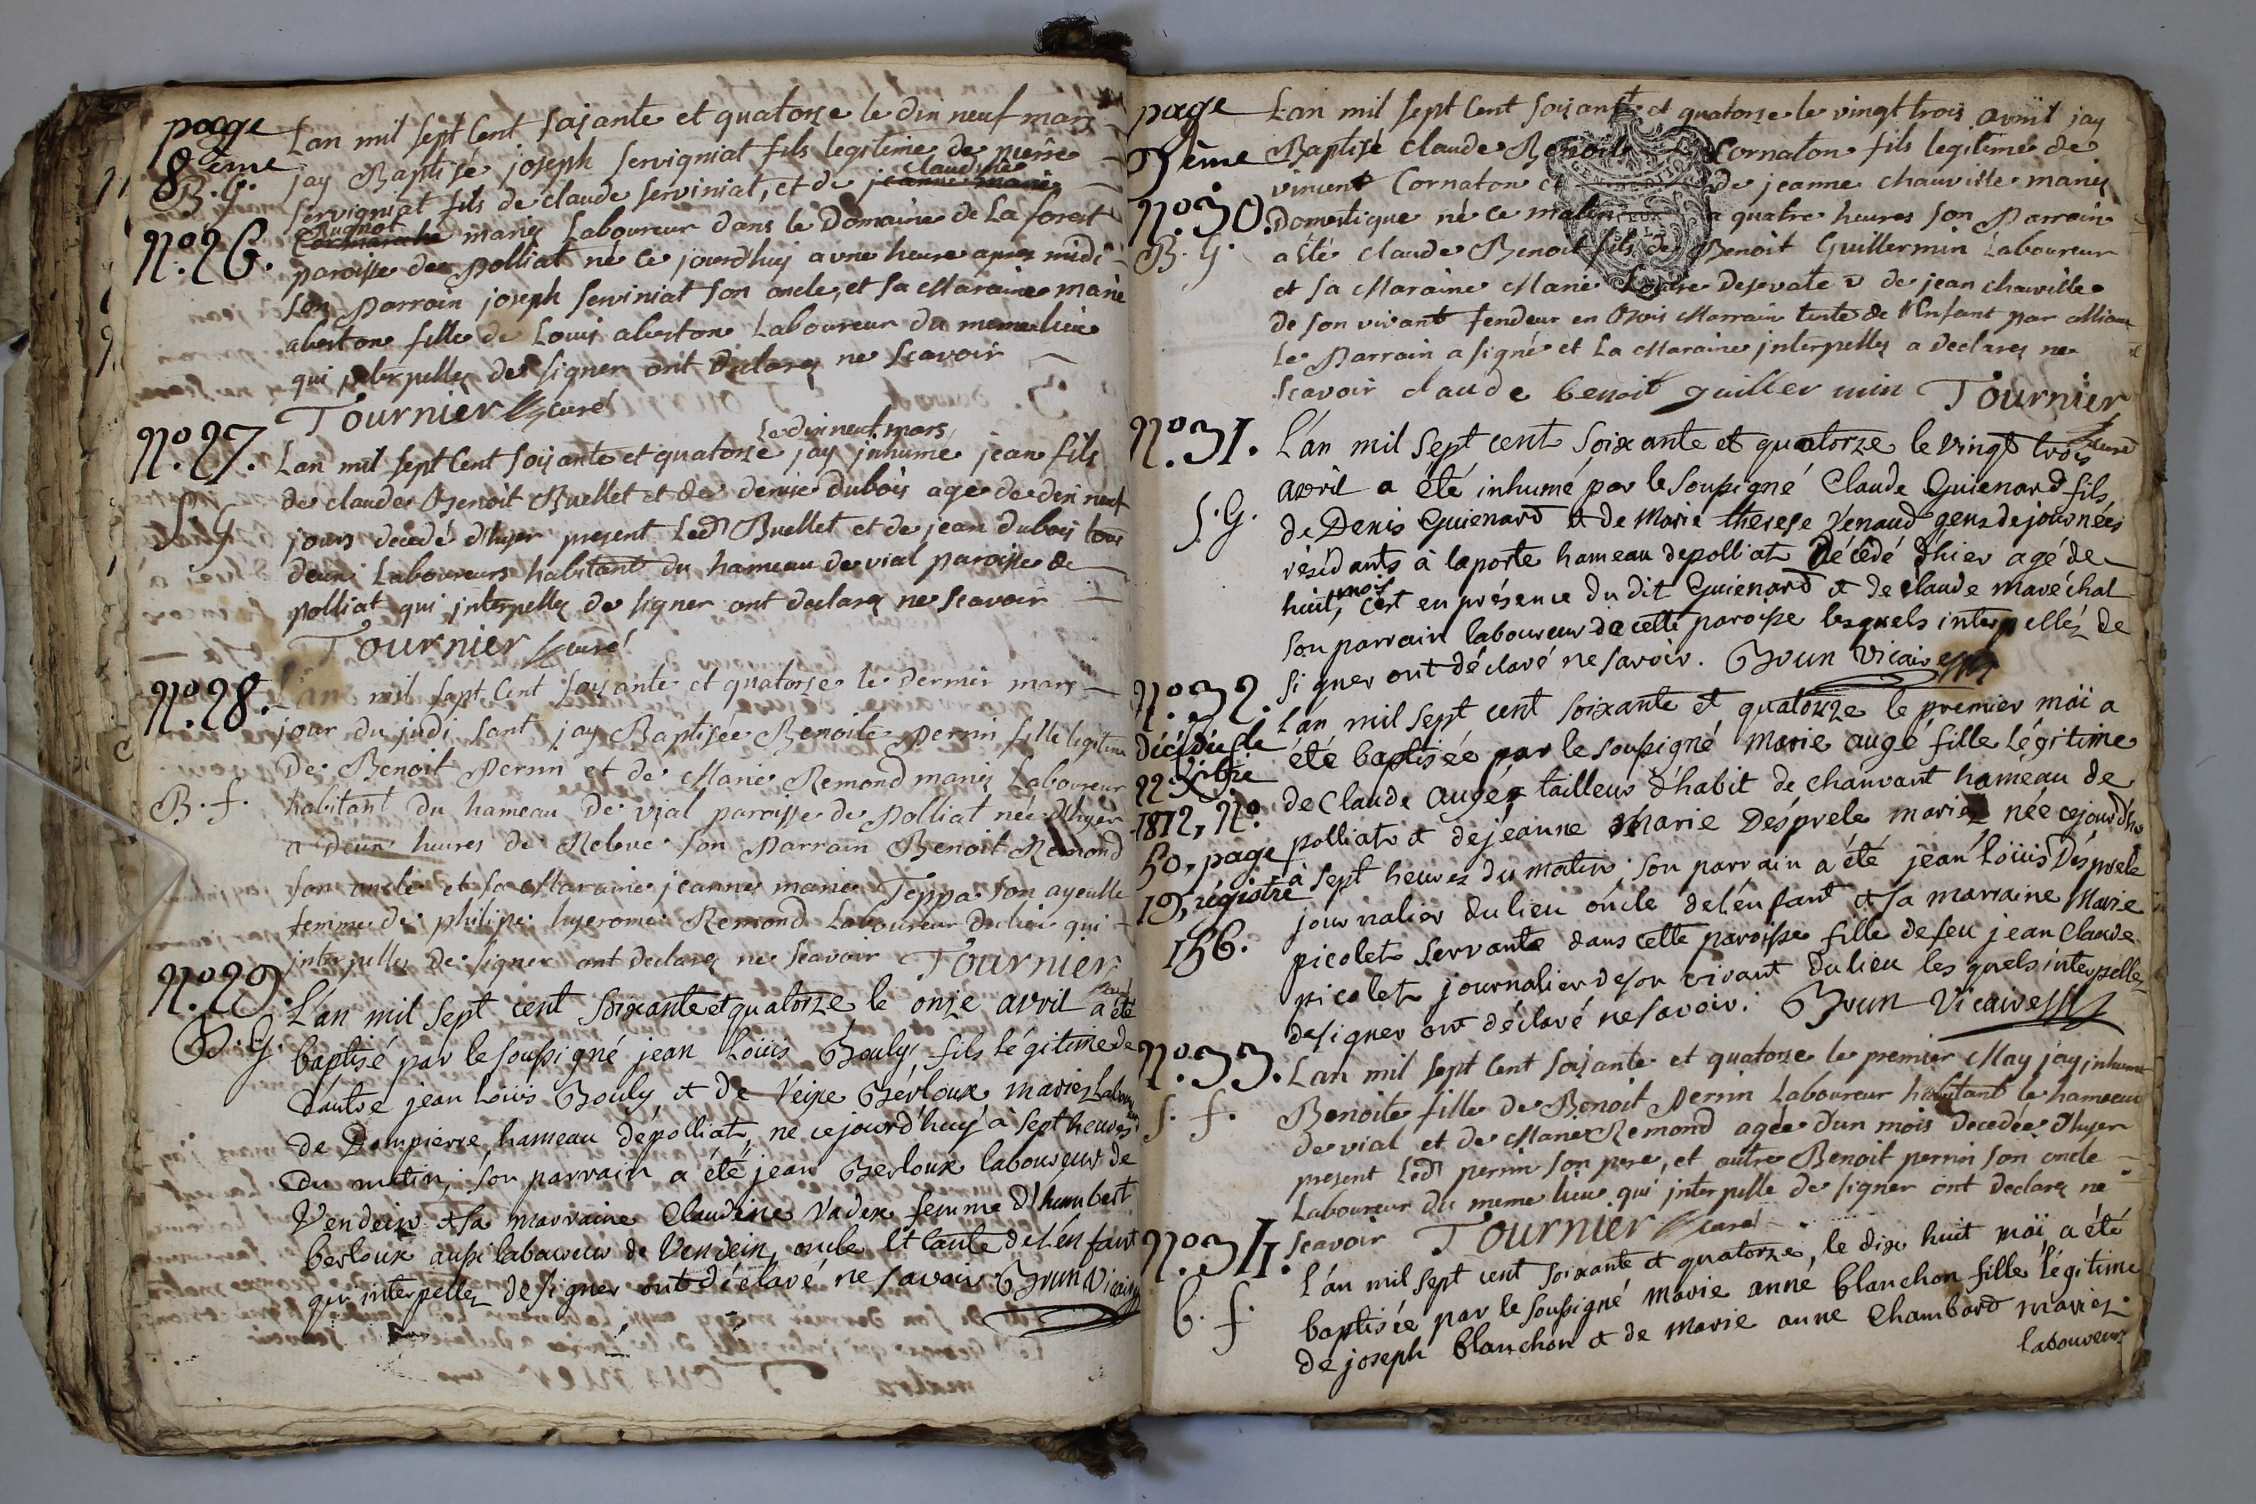 page
8ème
B. G.
N.º 26.
Lan mil sept Cent soixante et quatorze le dix neuf mars
jay Baptisé joseph servigniat fils legitime de pierre
servigniat fils de claude serviniat, et de jeanne marie claudine
Bugnot mariez Laboureur dans le Domaine de La forest
paroisse de polliat né ce jourdhuy a une heure apres midi
son parrain joseph serviniat son oncle, et sa Maraine marie
abertone fille de Louis abertone Laboureur du meme lieu
qui interpellez de signer ont declarez ne scavoir
Tournier curé
N.º 27.
S. G.
Lan mil sept Cent soixante et quatorze le dix neuf mars jay inhumé jean fils
de claude Benoit Buellet et de denise dubois age de dix neuf
jours decedé d'hyer present Led. Buellet et de jean dubois tous
deux Laboureurs habitant du hameau de vial paroisse de
polliat qui interpellez de signer ont declarez ne scavoir
Tournier curé
N.º 28.
B. f.
Lan mil sept Cent soixante et quatorze le dernier mars
jour du judi sant jay Baptisée Benoite perrin fille legitime
De Benoit perrin et de Marie Remond mariez Laboureur
habitant du hameau De vial paroisse de polliat née d'hyer
a deux heures de Releve son parrain Benoit Remond
son oncle et sa Maraine jeanne marie Teppa son ayeulle
femme de philipe hyerome Remond Laboureur du lieu qui
interpellez de signer ont declarez ne scavoir Tournier
curé
N.º 29.
B. G.
L'an mil sept cent soixante et quatorze le onze avril a été
baptisé par le soussigné jean Loüis Bouly fils légitime de
d'autre jean Loüis Bouly et de Reine Berloux mariez Laboureur
de Dompierre hameau dépolliat, né cejourd'huy à sept heures
du matin, son parrain a été jean Berloux laboureur de
Vendein et sa marraine Claudine Vadex femme d'humbert
berloux aussi laboureur de Vendein, oncle et tante del'enfant
qui interpellez designer ont déclaré ne savoir. Brun Vicaire
page
9ème
N.º 30.
B. G.
Lan mil sept Cent soixante et quatorze le vingt trois avril jay
Baptisé claude Benoit Cornaton fils legitime de
vincent Cornaton et de jeanne chauville mariez
Domestique né ce matin a quatre heures son Parrain
a été claude Benoit fils de Benoit Guillermin Laboureur
et sa Maraine Marie de jean chauville
de son vivant fendeur en Bois Marrain tente de l'Enfant par alliance
Le Parrain a signé et La Maraine interpellez a declarez ne
scavoir claude benoit guillermin Tournier
curé
N.º 31.
S. G.
L'an mil sept cent soixante et quatorze le vingt trois
avril a été inhumé par le soussigné Claude Guienard fils
de Denis Guienard et de Marie therese Renaud gens de journées
résidants à laporte hameau depolliat décédé d'hier agé de
huit mois, cest en présence du dit Guienard et de Claude Maréchal
son parrain laboureur de cette paroisse lesquels interpellez de
signer ont déclaré ne savoir. Brun Vicaire
N.º 32.
Décédée le
22 Xbre
1812, N.º
50, page
19, régistre
156.
L'an mil sept cent soixante et quatorze le premier mai a
été baptisée par le soussigné Marie augé fille légitime
de Claude augér tailleur d'habit de chanvant hameau de
polliat et dejeanne Marie Désprele mariez née cejourd'hui
à sept heures du matin. Son parrain a été jean Loüis Désprele
journalier du lieu oncle del'enfant et sa marraine Marie
picolet servante dans cette paroisse fille de feu jean Claude
picolet journalier deson vivant du lieu lesquels interpellez
designer ont déclaré ne savoir. Brun Vicaire
N.º 33.
S. f.
Lan mil sept Cent soixante et quatorze le premier May jay inhumé
Benoite fille de Benoit perrin Laboureur habitant le hameau
de vial et de Marie Remond agée d'un mois decedée d'hyer
present Led. perrin son pere, et autre Benoit perrin son oncle
Laboureur du meme lieu qui interpellé de signer ont declarez ne
scavoir Tournier curé
N.º 34.
b. f.
L'an mil sept cent soixante et quatorze, le dix huit mai, a été
baptisée par le soussigné Marie anne blanchon fille légitime
de joseph blanchon et de Marie anne Chambard mariez
laboureurs